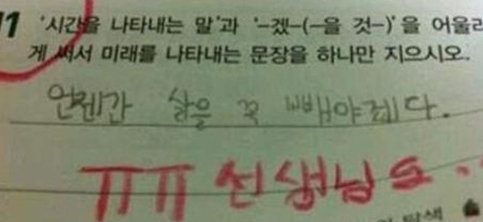 11 '시간을 나타내는 말'과 '-겠-(-을 것-)'을
게 써서 미래를 나타내는 문장을 하나만 지으시오.
언젠간 삶을 꼭 빼야게다.
ㅠㅠ 선생님도..
탐색